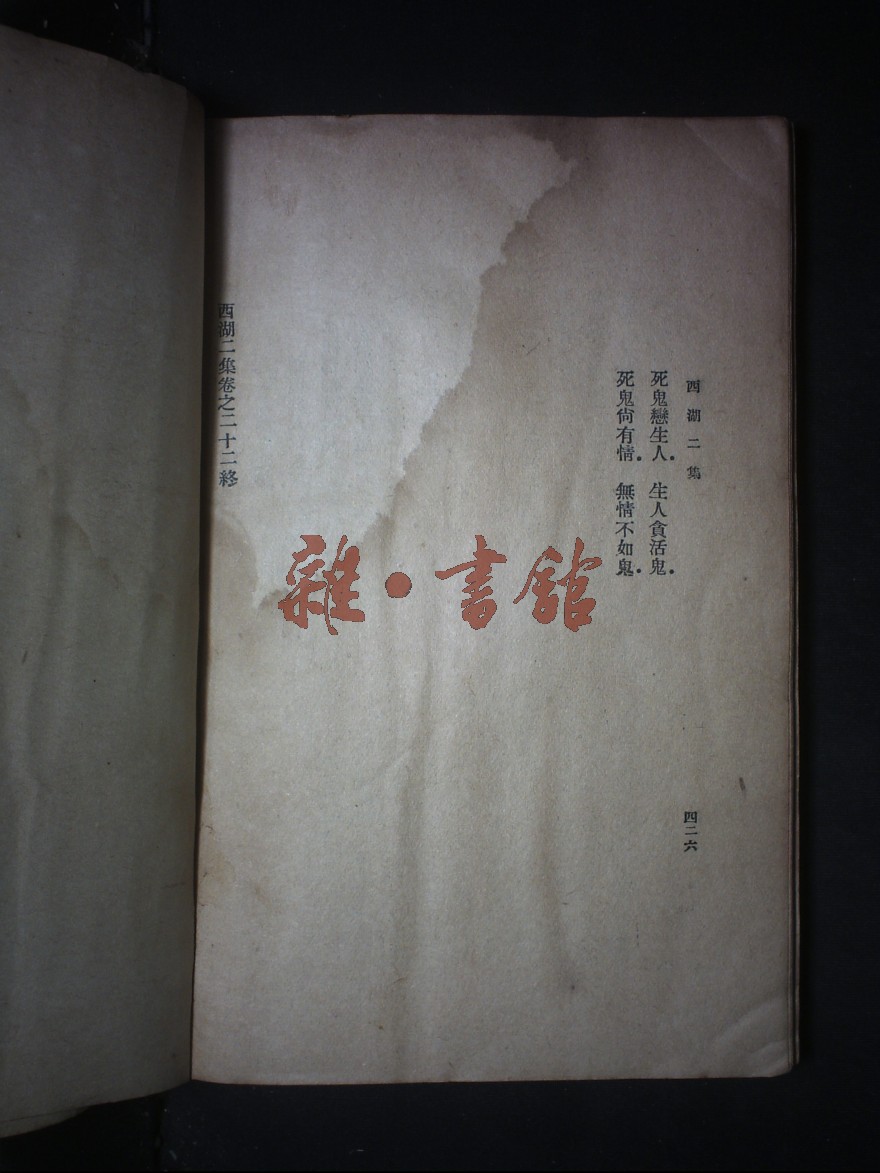 西湖二集
死鬼戀生人．生人貪活鬼．
死鬼尙有情．無情不如鬼．
西湖二集卷之二十二終
四二六
雜・書館